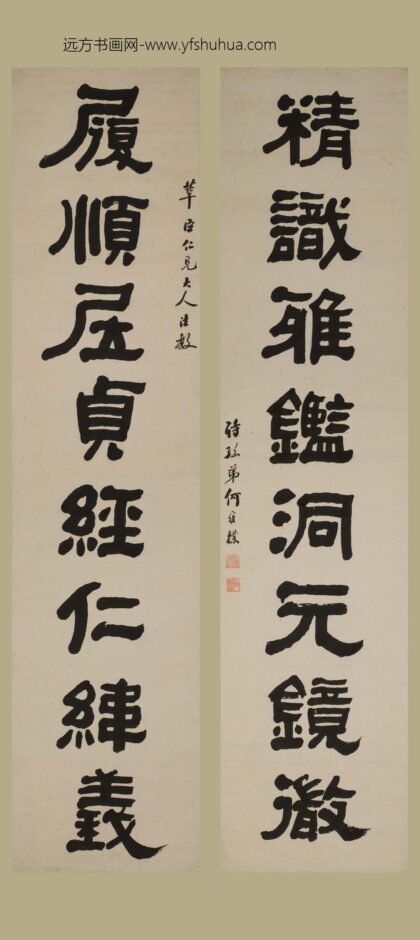 远方书画网-www.yfshuhua.com
精識雅鑑洞元鏡徹
履順居貞經仁緯義
臣仁兄大人法教
詩孫弟何維樸